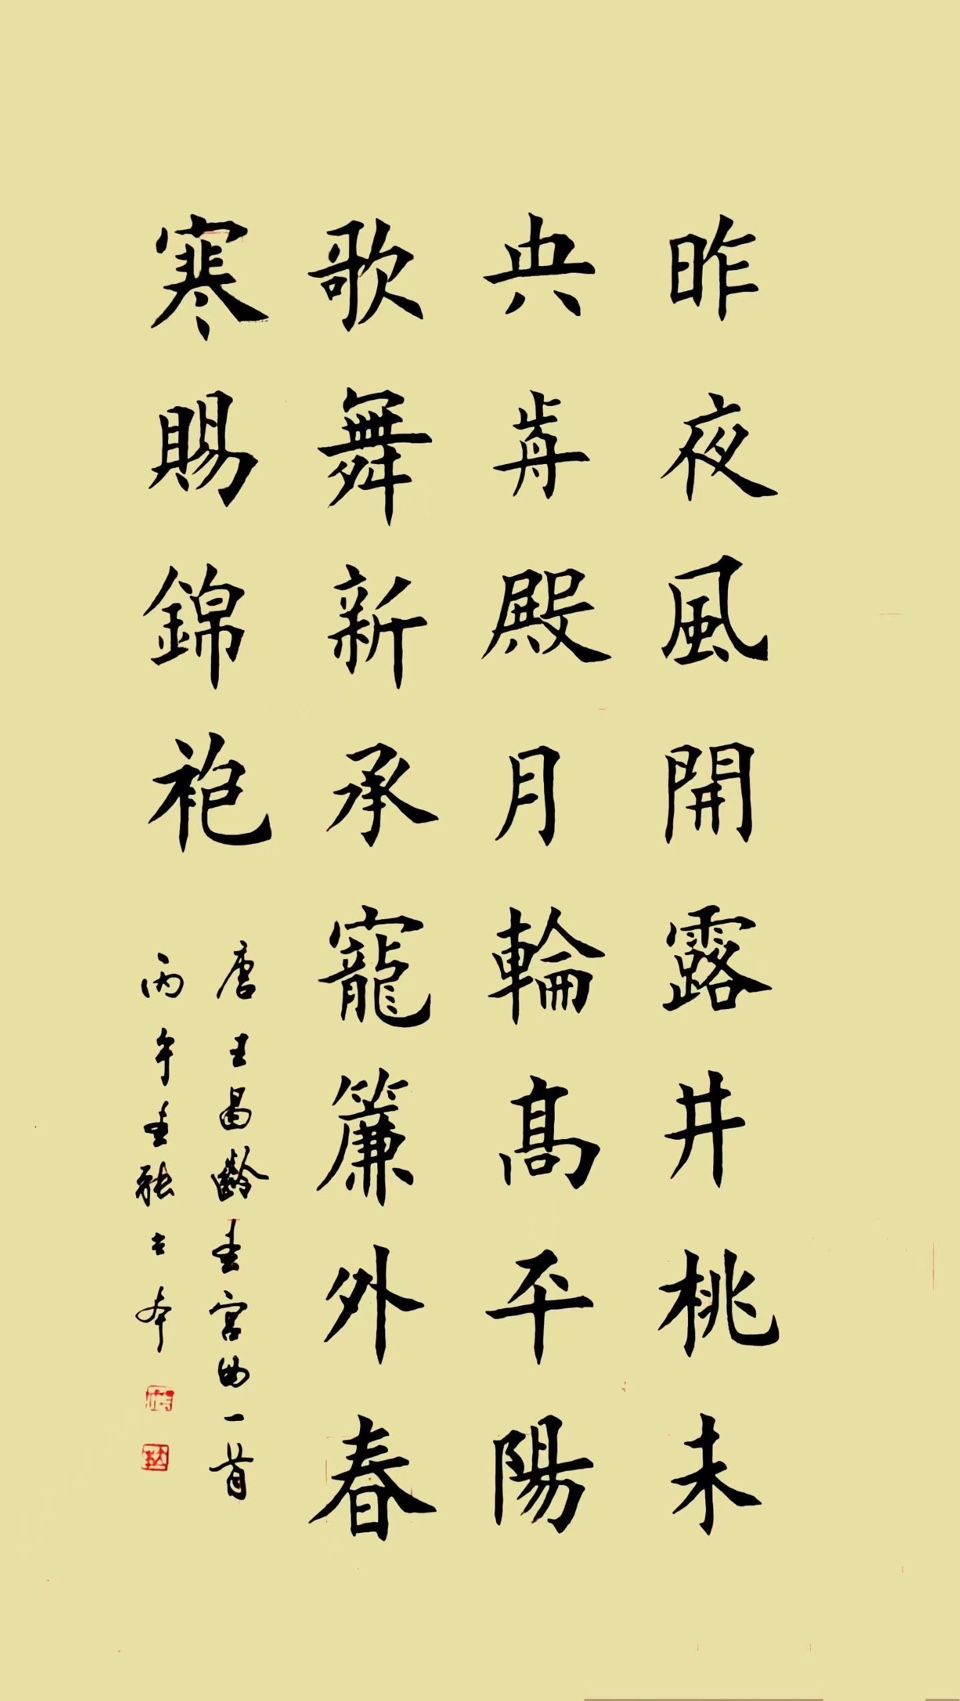 昨夜風開露井桃未
央歬殿月輪髙平陽
歌舞新承寵簾外春
寒賜錦袍
唐王昌齡春宮曲一首
丙午春